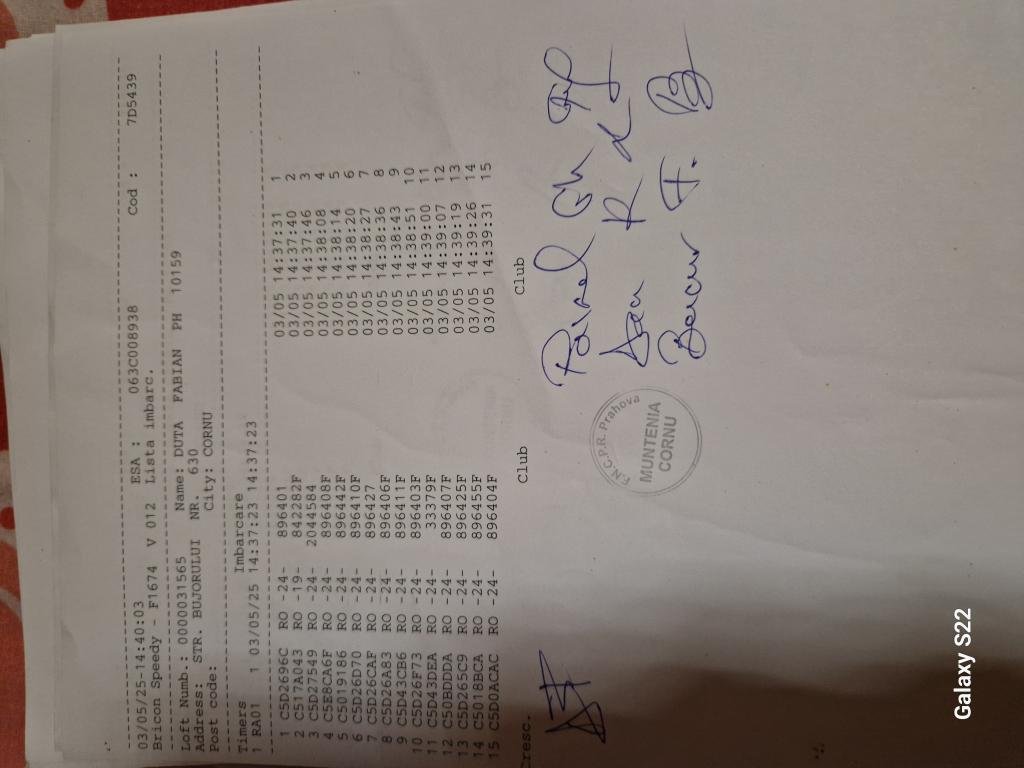 03/05/25-14:40:03 ESA : 063C008938 Cod : 7D5439
Bricon Speedy - F1674 V 012 Lista imbarc.
Loft Numb.: 0000031565 Name: DUTA FABIAN PH 10159
Address: STR. BUJORULUI NR. 630
Post code: City: CORNU
Timers Imbarcare
1 RA01 1 03/05/25 14:37:23 14:37:23
1 C5D2696C RO -24- 896401 03/05 14:37:31 1
2 C517A043 RO -19- 842282F 03/05 14:37:40 2
3 C5D27549 RO -24- 2044584 03/05 14:37:46 3
4 C5E8CA6F RO -24- 896408F 03/05 14:38:08 4
5 C5019186 RO -24- 896442F 03/05 14:38:14 5
6 C5D26D70 RO -24- 896410F 03/05 14:38:20 6
7 C5D26CAF RO -24- 896427 03/05 14:38:27 7
8 C5D26A83 RO -24- 896406F 03/05 14:38:36 8
9 C5D43CB6 RO -24- 896411F 03/05 14:38:43 9
10 C5D26F73 RO -24- 896403F 03/05 14:38:51 10
11 C5D43DEA RO -24- 33379F 03/05 14:39:00 11
12 C50BDDDA RO -24- 896407F 03/05 14:39:07 12
13 C5D265C9 RO -24- 896425F 03/05 14:39:19 13
14 C5018BCA RO -24- 896455F 03/05 14:39:26 14
15 C5D0ACAC RO -24- 896404F 03/05 14:39:31 15
Cresc. Club Club
F.N.C.P.R. Prahova
MUNTENIA
CORNU
Galaxy S22